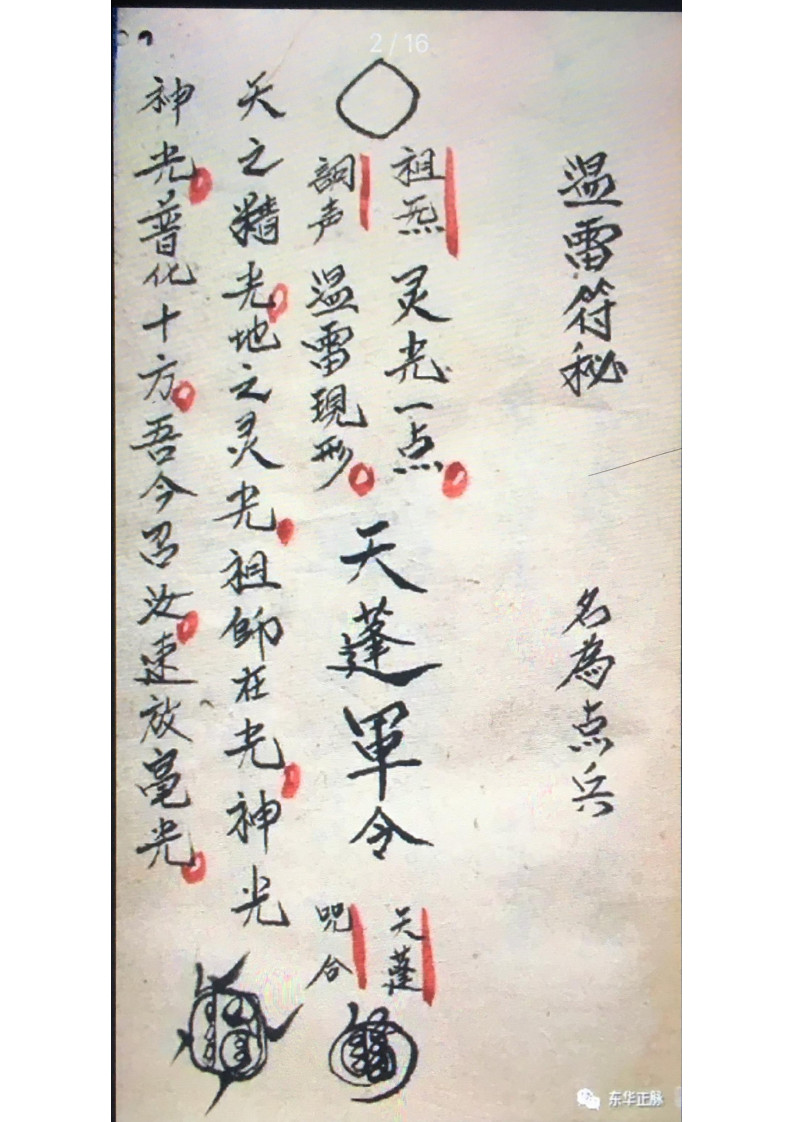 2/16
温雷符秘
名為点兵
祖炁
灵光一点
声
温雷現形
天蓬軍令
天蓬
咒合
天之精光地之灵光祖師在光神光
神光普化十方吾今召汝速放毫光
东华正脉